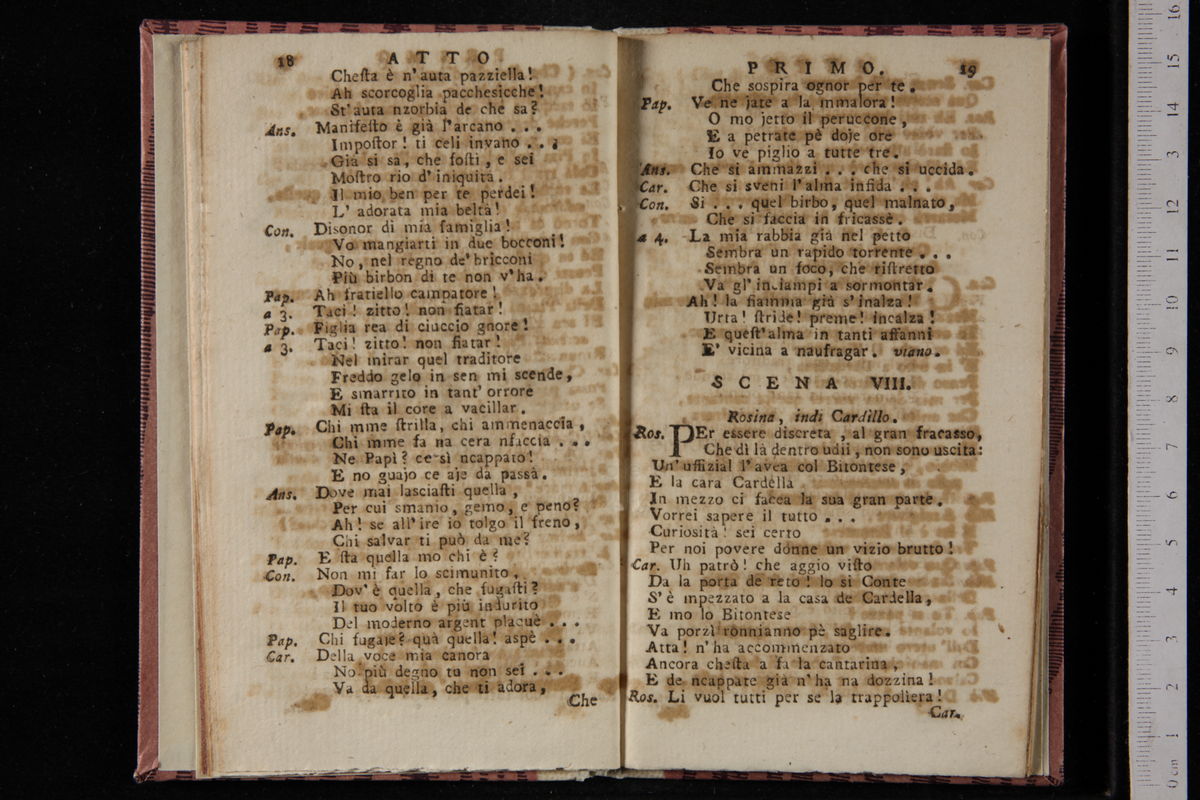 18 ATTO
Chesta è n'auta pazziella!
Ah scorcoglia pacchesicche!
St'auta nzorbia de che sa?
Ans. Manifesto è già l'arcano . . .
Impostor! ti celi invano . . .
Già si sa, che fosti, e sei
Mostro rio d'iniquità.
Il mio ben per te perdei!
L'adorata mia beltà!
Con. Disonor di mia famiglia!
Vo mangiarti in due bocconi!
No, nel regno de'bricconi
Più birbon di te non v'ha.
Pap. Ah fratiello campatore!
a 3. Taci! zitto! non fiatar!
Pap. Figlia rea di ciuccio gnore!
a 3. Taci! zitto! non fiatar!
Nel mirar quel traditore
Freddo gelo in sen mi scende,
E smarrito in tant'orrore
Mi sta il core a vacillar.
Pap. Chi mme strilla, chi ammenaccia,
Chi mme fa na cera nfaccia . . .
Ne Papì? ce si ncappato!
E no guajo ce aje da passà.
Ans. Dove mai lasciasti quella,
Per cui smanio, gemo, e peno?
Ah! se all'ire io tolgo il freno,
Chi salvar ti può da me?
Pap. E sta quella mo chi è?
Con. Non mi far lo scimunito,
Dov'è quella, che fugasti?
Il tuo volto è più indurito
Del moderno argent plaquè . . .
Pap. Chi fugaje? quà quella! aspè . . .
Car. Della voce mia canora
No più degno tu non sei . . .
Va da quella, che ti adora,
Che
PRIMO. 19
Che sospira ognor per te.
Pap. Ve ne jate a la mmalora!
O mo jetto il peruccone,
E a petrate pè doje ore
Io ve piglio a tutte tre.
Ans. Che si ammazzi . . . che si uccida.
Car. Che si sveni l'alma infida . . .
Con. Si . . . quel birbo, quel malnato,
Che si faccia in fricassè.
a 4. La mia rabbia già nel petto
Sembra un rapido torrente . . .
Sembra un foco, che ristretto
Va gl'inciampi a sormontar.
Ah! la fiamma già s'inalza!
Urta! stride! preme! incalza!
E quest'alma in tanti affanni
E' vicina a naufragar. viano.
SCENA VIII.
Rosina, indi Cardillo.
Ros. PEr essere discreta, al gran fracasso,
Che di là dentro udii, non sono uscita:
Un'uffizial l'avea col Bitontese,
E la cara Cardella
In mezzo ci facea la sua gran parte.
Vorrei sapere il tutto . . .
Curiosità! sei certo
Per noi povere donne un vizio brutto!
Car. Uh patrò! che aggio visto
Da la porta de reto! lo si Conte
S'è mpezzato a la casa de Cardella,
E mo lo Bitontese
Va porzì ronnianno pè saglire.
Atta! n'ha accommenzato
Ancora chesta a fa la cantarina,
E de ncappate già n'ha na dozzina!
Ros. Li vuol tutti per se la trappoliera!
Car.
16
15
14
13
12
11
10
9
8
7
6
5
4
3
2
1
0 cm